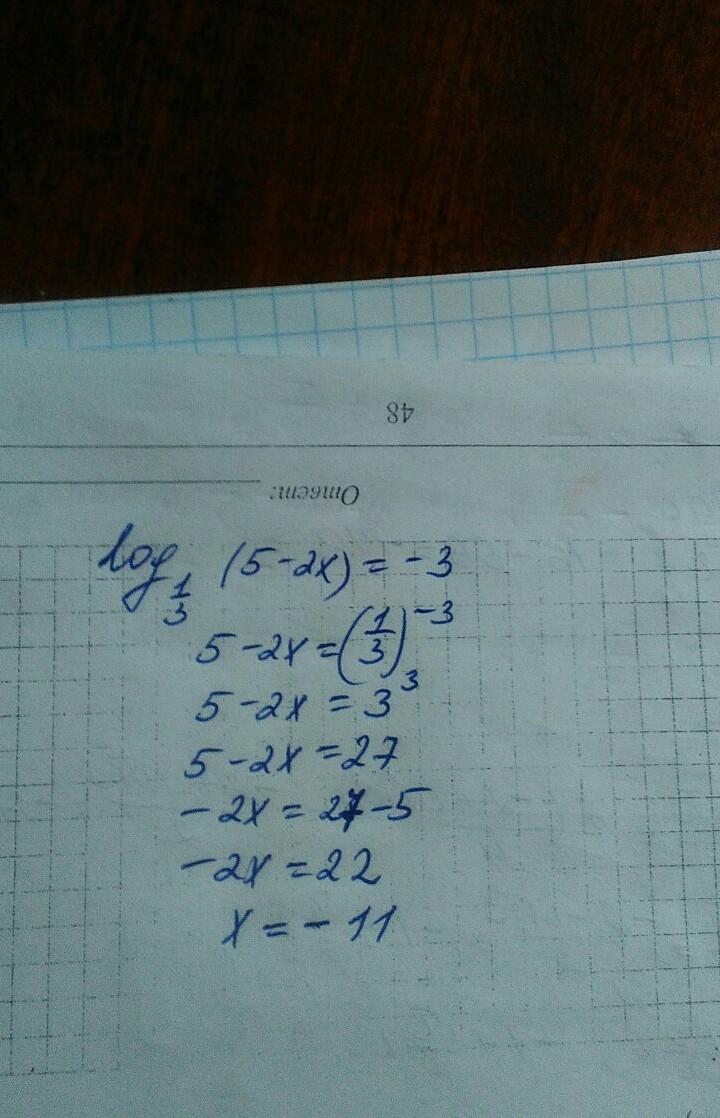 48
Ответ:
log 1/3 (5-2x) = -3
5-2x = (1/3)^-3
5-2x = 3^3
5-2x = 27
-2x = 27-5
-2x = 22
x = -11